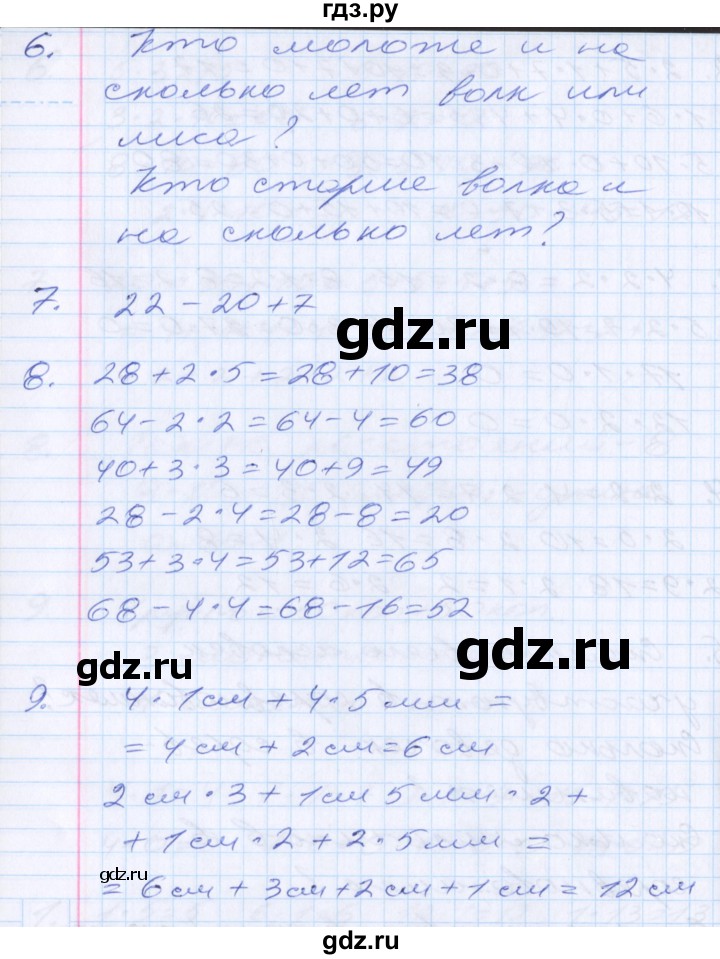 гдз.ру
6. Кто моложе и на
сколько лет волк или
лиса?
Кто старше волка и
на сколько лет?
7. 22 - 20 + 7
gdz.ru
8. 28 + 2 · 5 = 28 + 10 = 38
64 - 2 · 2 = 64 - 4 = 60
40 + 3 · 3 = 40 + 9 = 49
28 - 2 · 4 = 28 - 8 = 20
53 + 3 · 4 = 53 + 12 = 65
68 - 4 · 4 = 68 - 16 = 52
gdz.ru
gdz.ru
9. 4 · 1 см + 4 · 5 мм =
= 4 см + 2 см = 6 см
2 см · 3 + 1 см 5 мм · 2 +
+ 1 см · 2 + 2 · 5 мм =
gdz.ru
= 6 см + 3 см + 2 см + 1 см = 12 см
gdz.ru